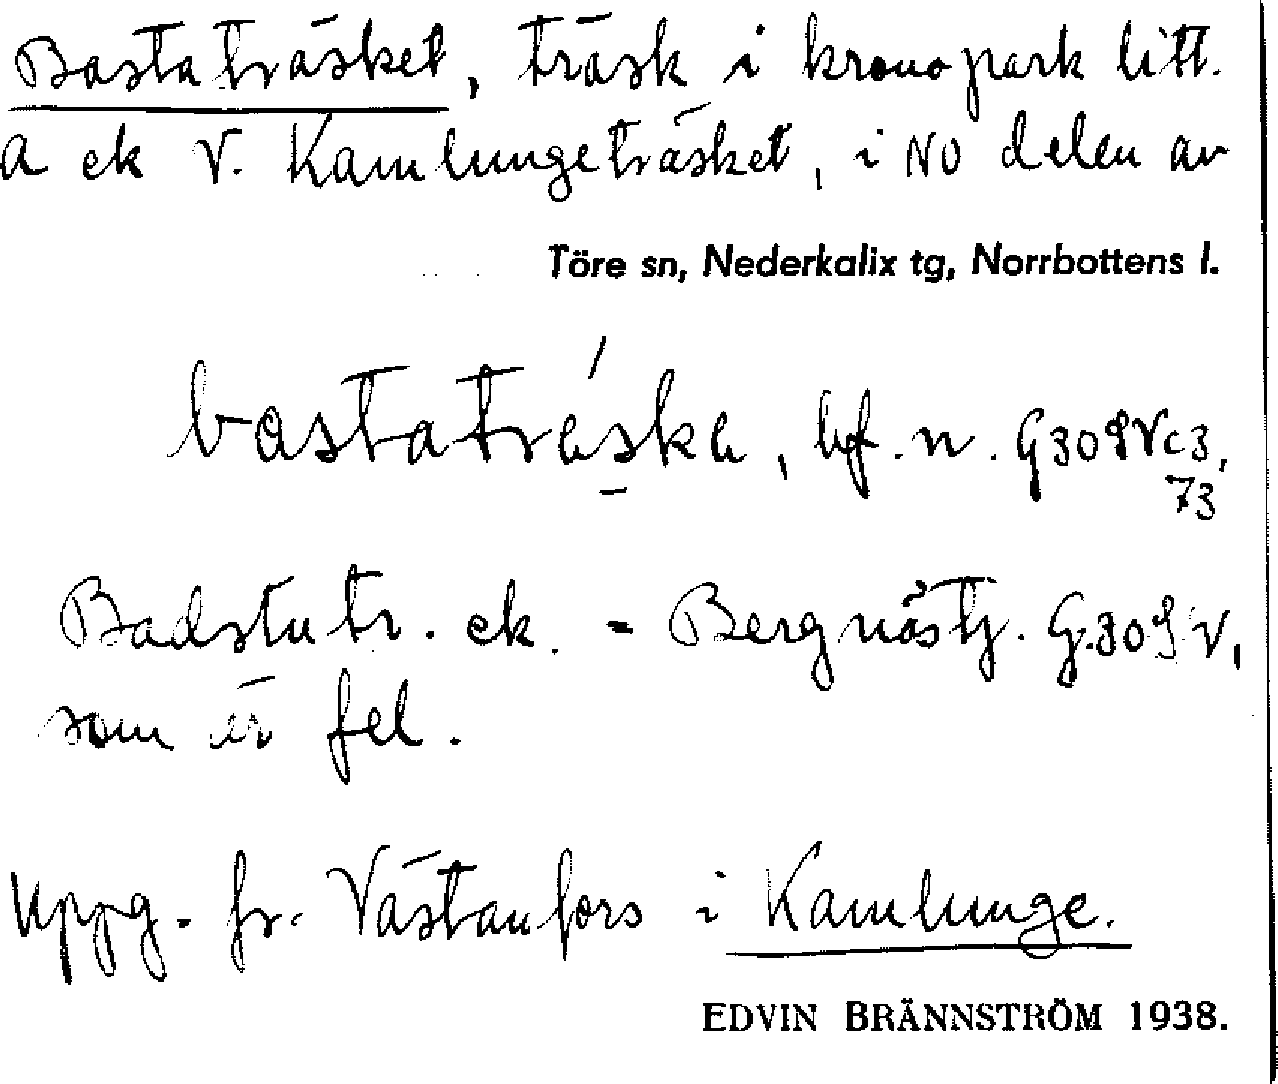 Bastaträsket, träsk i kronopark litt.
A ek V. Kamlungeträsket, i NO delen av
Töre sn, Nederkalix tg, Norrbottens l.
bastatréska, bf. n. G309Vc3,
73
Badstutr. ek. = Bergnästj. G.309 V,
som är fel.
Uppg. fr. Västanfors i Kamlunge.
EDVIN BRÄNNSTRÖM 1938.